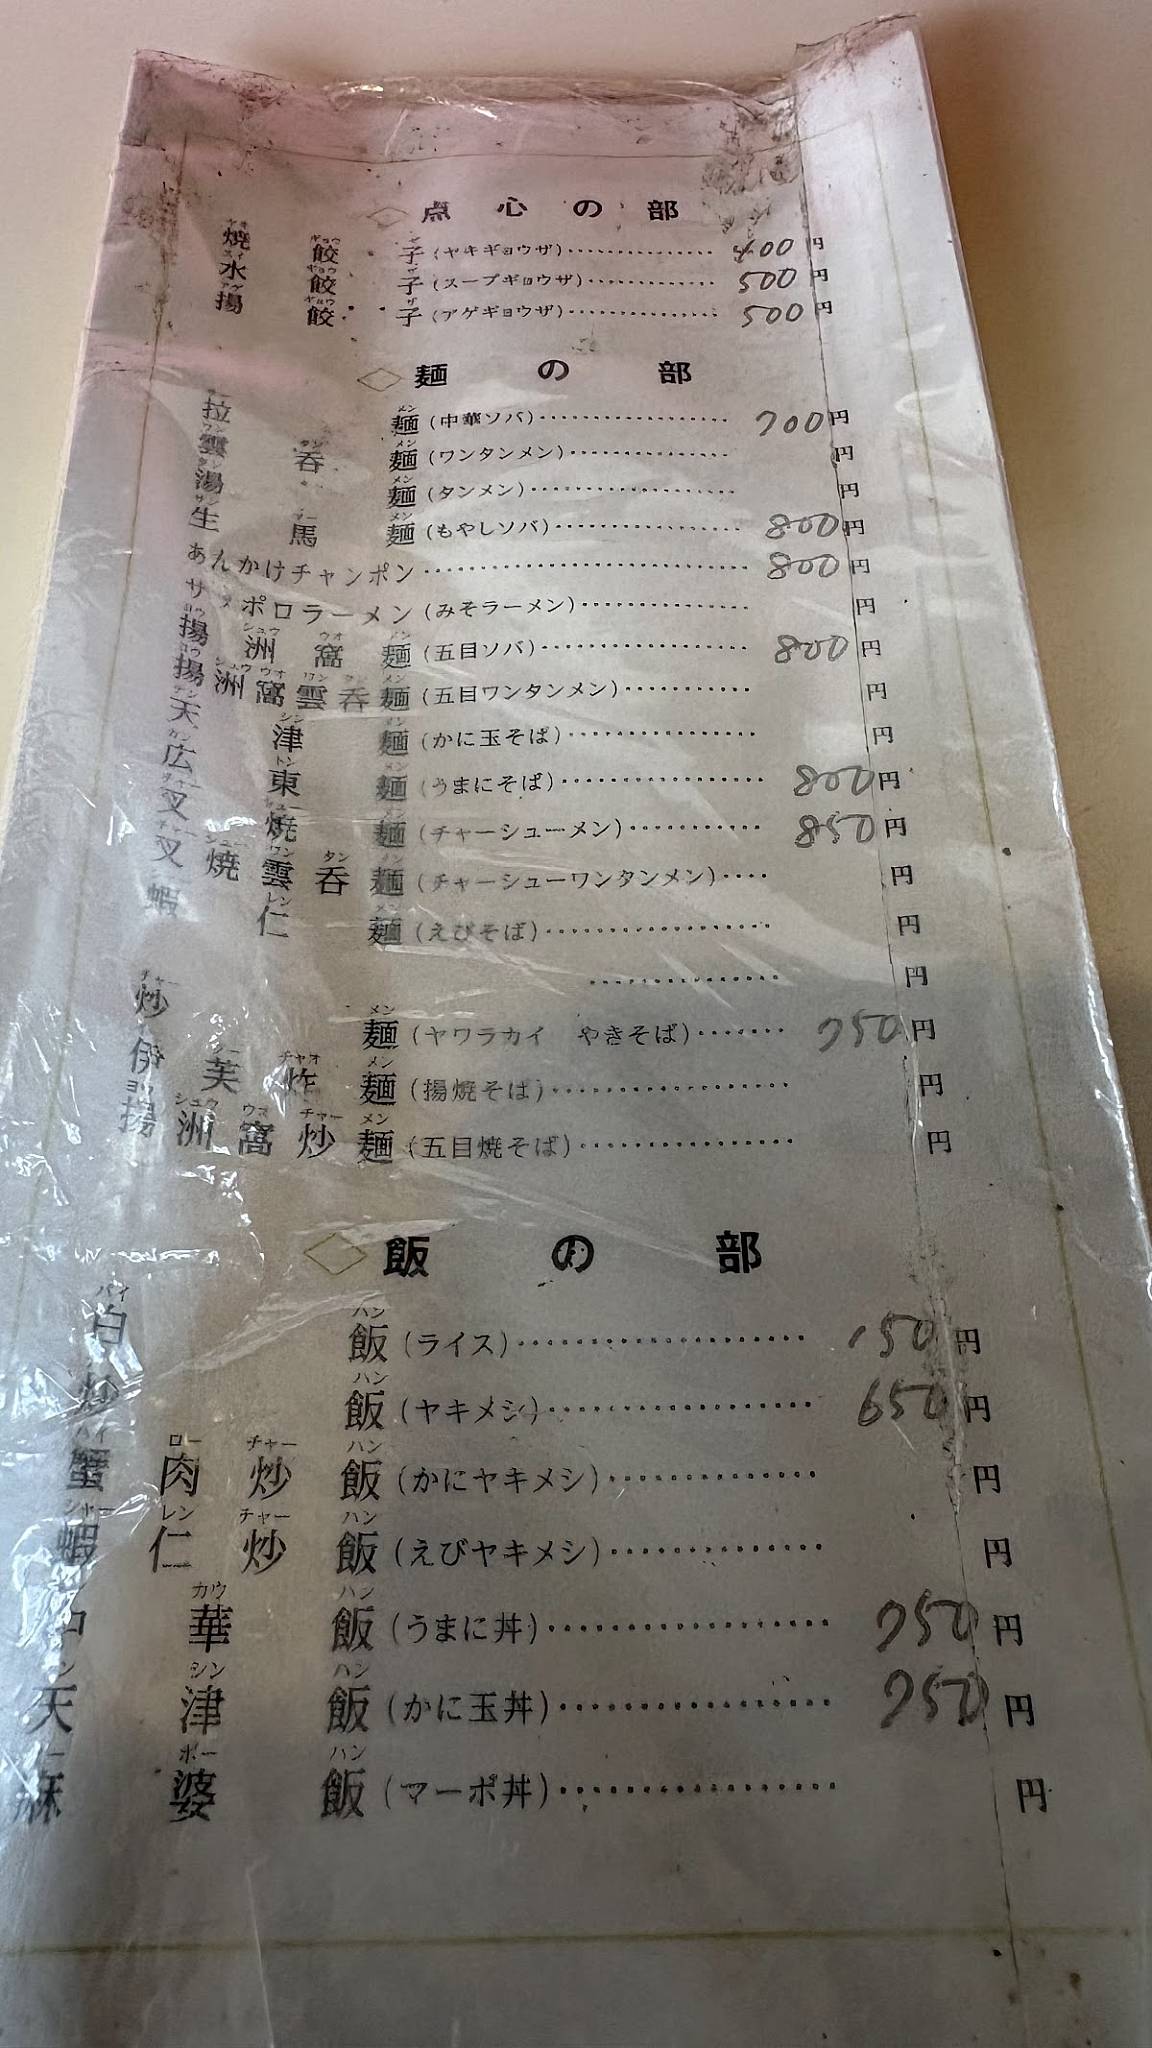 点心の部
焼餃子(ヤキギョウザ)……………400円
水餃子(スープギョウザ)……………500円
揚餃子(アゲギョウザ)……………500円
麺の部
拉麺(中華ソバ)……………700円
雲呑麺(ワンタンメン)……………円
湯麺(タンメン)……………円
生馬麺(もやしソバ)……………800円
あんかけチャンポン……………800円
サッポロラーメン(みそラーメン)……………円
揚洲窩麺(五目ソバ)……………800円
揚洲窩雲呑麺(五目ワンタンメン)……………円
天津麺(かに玉そば)……………円
広東麺(うまにそば)……………800円
叉焼麺(チャーシューメン)……………850円
叉焼雲呑麺(チャーシューワンタンメン)……円
蝦仁麺(えびそば)……………円
……………円
炒麺(ヤワラカイ やきそば)………750円
伊芙炸麺(揚焼そば)……………円
揚洲窩炒麺(五目焼そば)……………円
飯の部
白飯(ライス)……………150円
炒飯(ヤキメシ)……………650円
蟹肉炒飯(かにヤキメシ)……………円
蝦仁炒飯(えびヤキメシ)……………円
中華飯(うまに丼)……………750円
天津飯(かに玉丼)……………750円
麻婆飯(マーボ丼)……………円